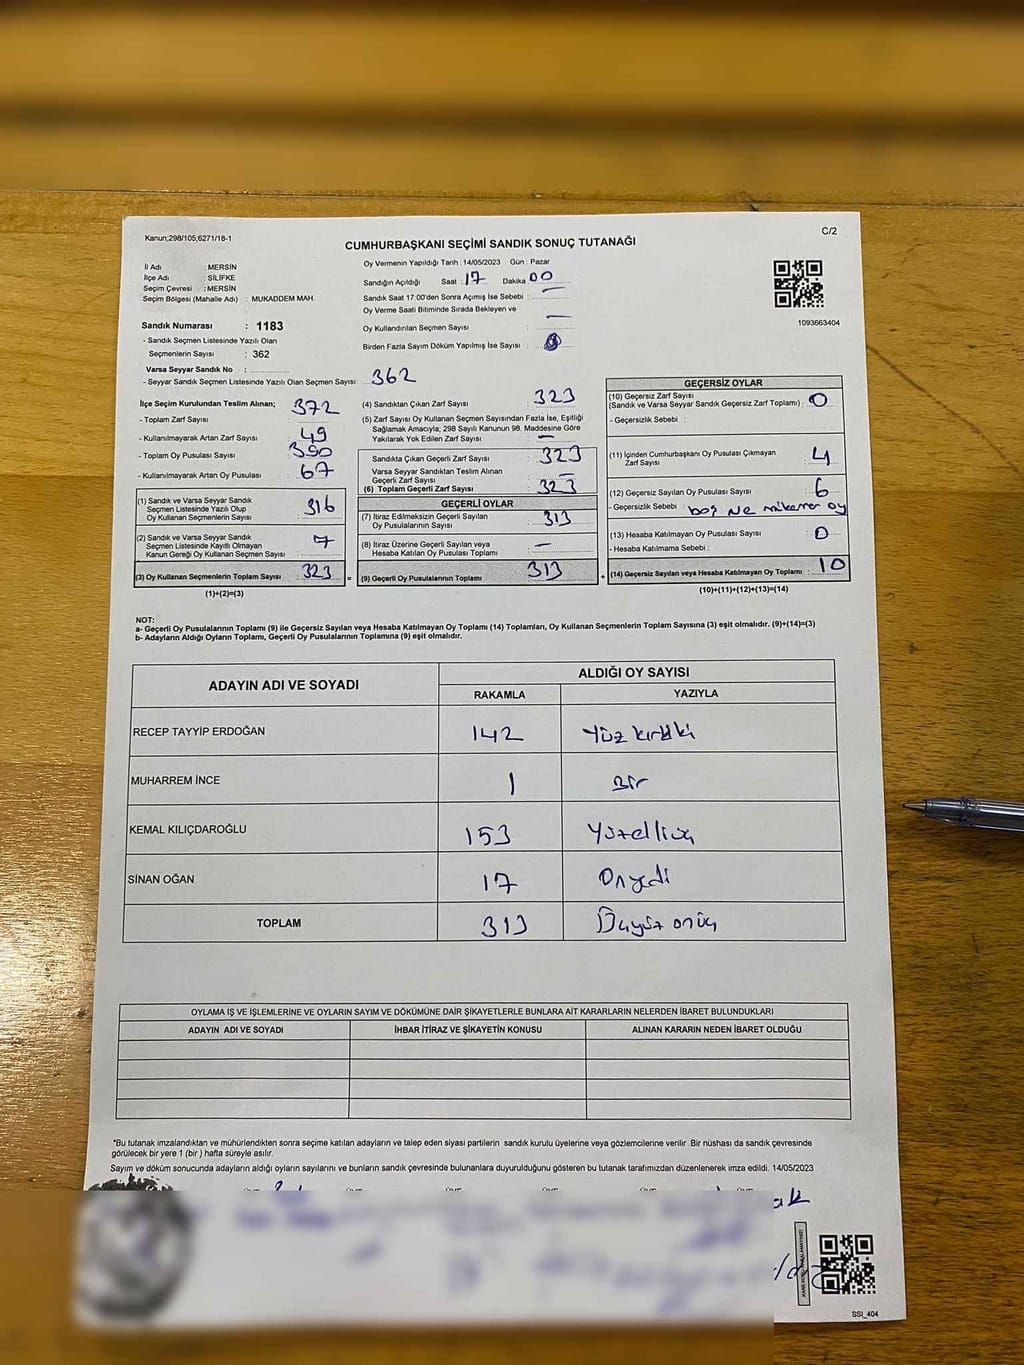 Kanun;298/105;6271/18-1
C/2
CUMHURBAŞKANI SEÇİMİ SANDIK SONUÇ TUTANAĞI
İl Adı : MERSİN
İlçe Adı : SİLİFKE
Seçim Çevresi : MERSİN
Seçim Bölgesi (Mahalle Adı) : MUKADDEM MAH.
Sandık Numarası : 1183
- Sandık Seçmen Listesinde Yazılı Olan
Seçmenlerin Sayısı : 362
Varsa Seyyar Sandık No :
- Seyyar Sandık Seçmen Listesinde Yazılı Olan Seçmen Sayısı: 362
Oy Vermenin Yapıldığı Tarih : 14/05/2023 Gün : Pazar
Sandığın Açıldığı Saat : 17 Dakika : 00
Sandık Saat 17:00'den Sonra Açımış İse Sebebi : —
Oy Verme Saati Bitiminde Sırada Bekleyen ve
Oy Kullandırılan Seçmen Sayısı : —
Birden Fazla Sayım Döküm Yapılmış İse Sayısı :
1093663404
İlçe Seçim Kurulundan Teslim Alınan;
- Toplam Zarf Sayısı : 372
- Kullanılmayarak Artan Zarf Sayısı : 49
- Toplam Oy Pusulası Sayısı : 390
- Kullanılmayarak Artan Oy Pusulası : 67
(1) Sandık ve Varsa Seyyar Sandık
Seçmen Listesinde Yazılı Olup
Oy Kullanan Seçmenlerin Sayısı : 316
(2) Sandık ve Varsa Seyyar Sandık
Seçmen Listesinde Kayıtlı Olmayan
Kanun Gereği Oy Kullanan Seçmen Sayısı : 7
(3) Oy Kullanan Seçmenlerin Toplam Sayısı : 323 =
(1)+(2)=(3)
(4) Sandıktan Çıkan Zarf Sayısı : 323
(5) Zarf Sayısı Oy Kullanan Seçmen Sayısından Fazla İse, Eşitliği
Sağlamak Amacıyla; 298 Sayılı Kanunun 98. Maddesine Göre
Yakılarak Yok Edilen Zarf Sayısı : —
Sandıkta Çıkan Geçerli Zarf Sayısı : 323
Varsa Seyyar Sandıktan Teslim Alınan
Geçerli Zarf Sayısı : —
(6) Toplam Geçerli Zarf Sayısı : 323
GEÇERLİ OYLAR
(7) İtiraz Edilmeksizin Geçerli Sayılan
Oy Pusulalarının Sayısı : 313
(8) İtiraz Üzerine Geçerli Sayılan veya
Hesaba Katılan Oy Pusulası Toplamı : —
(9) Geçerli Oy Pusulalarının Toplamı : 313 +
GEÇERSİZ OYLAR
(10) Geçersiz Zarf Sayısı
(Sandık ve Varsa Seyyar Sandık Geçersiz Zarf Toplamı) : 0
- Geçersizlik Sebebi :
(11) İçinden Cumhurbaşkanı Oy Pusulası Çıkmayan
Zarf Sayısı : 4
(12) Geçersiz Sayılan Oy Pusulası Sayısı : 6
- Geçersizlik Sebebi : boş ve mükerrer oy
(13) Hesaba Katılmayan Oy Pusulası Sayısı : 0
- Hesaba Katılmama Sebebi :
(14) Geçersiz Sayılan veya Hesaba Katılmayan Oy Toplamı : 10
(10)+(11)+(12)+(13)=(14)
NOT:
a- Geçerli Oy Pusulalarının Toplamı (9) ile Geçersiz Sayılan veya Hesaba Katılmayan Oy Toplamı (14) Toplamları, Oy Kullanan Seçmenlerin Toplam Sayısına (3) eşit olmalıdır. (9)+(14)=(3)
b- Adayların Aldığı Oyların Toplamı, Geçerli Oy Pusulalarının Toplamına (9) eşit olmalıdır.
ADAYIN ADI VE SOYADI ALDIĞI OY SAYISI
RAKAMLA YAZIYLA
RECEP TAYYİP ERDOĞAN 142 Yüz kırkiki
MUHARREM İNCE 1 Bir
KEMAL KILIÇDAROĞLU 153 Yüzelliüç
SİNAN OĞAN 17 Onyedi
TOPLAM 313 Üçyüz onüç
OYLAMA İŞ VE İŞLEMLERİNE VE OYLARIN SAYIM VE DÖKÜMÜNE DAİR ŞİKAYETLERLE BUNLARA AİT KARARLARIN NELERDEN İBARET BULUNDUKLARI
ADAYIN ADI VE SOYADI İHBAR İTİRAZ VE ŞİKAYETİN KONUSU ALINAN KARARIN NEDEN İBARET OLDUĞU
*Bu tutanak imzalandıktan ve mühürlendikten sonra seçime katılan adayların ve talep eden siyasi partilerin sandık kurulu üyelerine veya gözlemcilerine verilir .Bir nüshası da sandık çevresinde
görülecek bir yere 1 (bir ) hafta süreyle asılır.
Sayım ve döküm sonucunda adayların aldığı oyların sayılarını ve bunların sandık çevresinde bulunanlara duyurulduğunu gösteren bu tutanak tarafımızdan düzenlenerek imza edildi. 14/05/2023
SSI_404